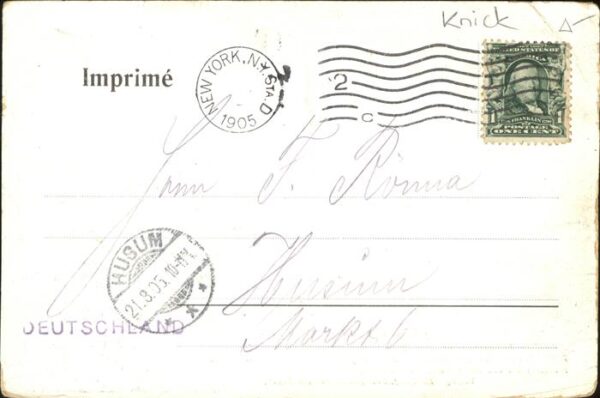 Knick
Imprimé
NEW YORK, N.Y. STA. D
1905
2
C
UNITED STATES OF AMERICA
FRANKLIN
POSTAGE
ONE CENT
Herrn F. Rönna
HUSUM
21.8.05.10-11V.
* X *
Husum
DEUTSCHLAND
Markt 6